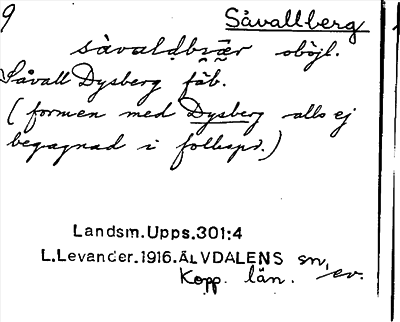 9
Såvallberg
såvaldbvær oböjl.
Såvall Dysberg fäb.
(formen med Dysberg alls ej
begagnad i folkspr.)
Landsm.Upps.301:4
L.Levander.1916.ÄLVDALENS sn,
Kopp. län. ev.